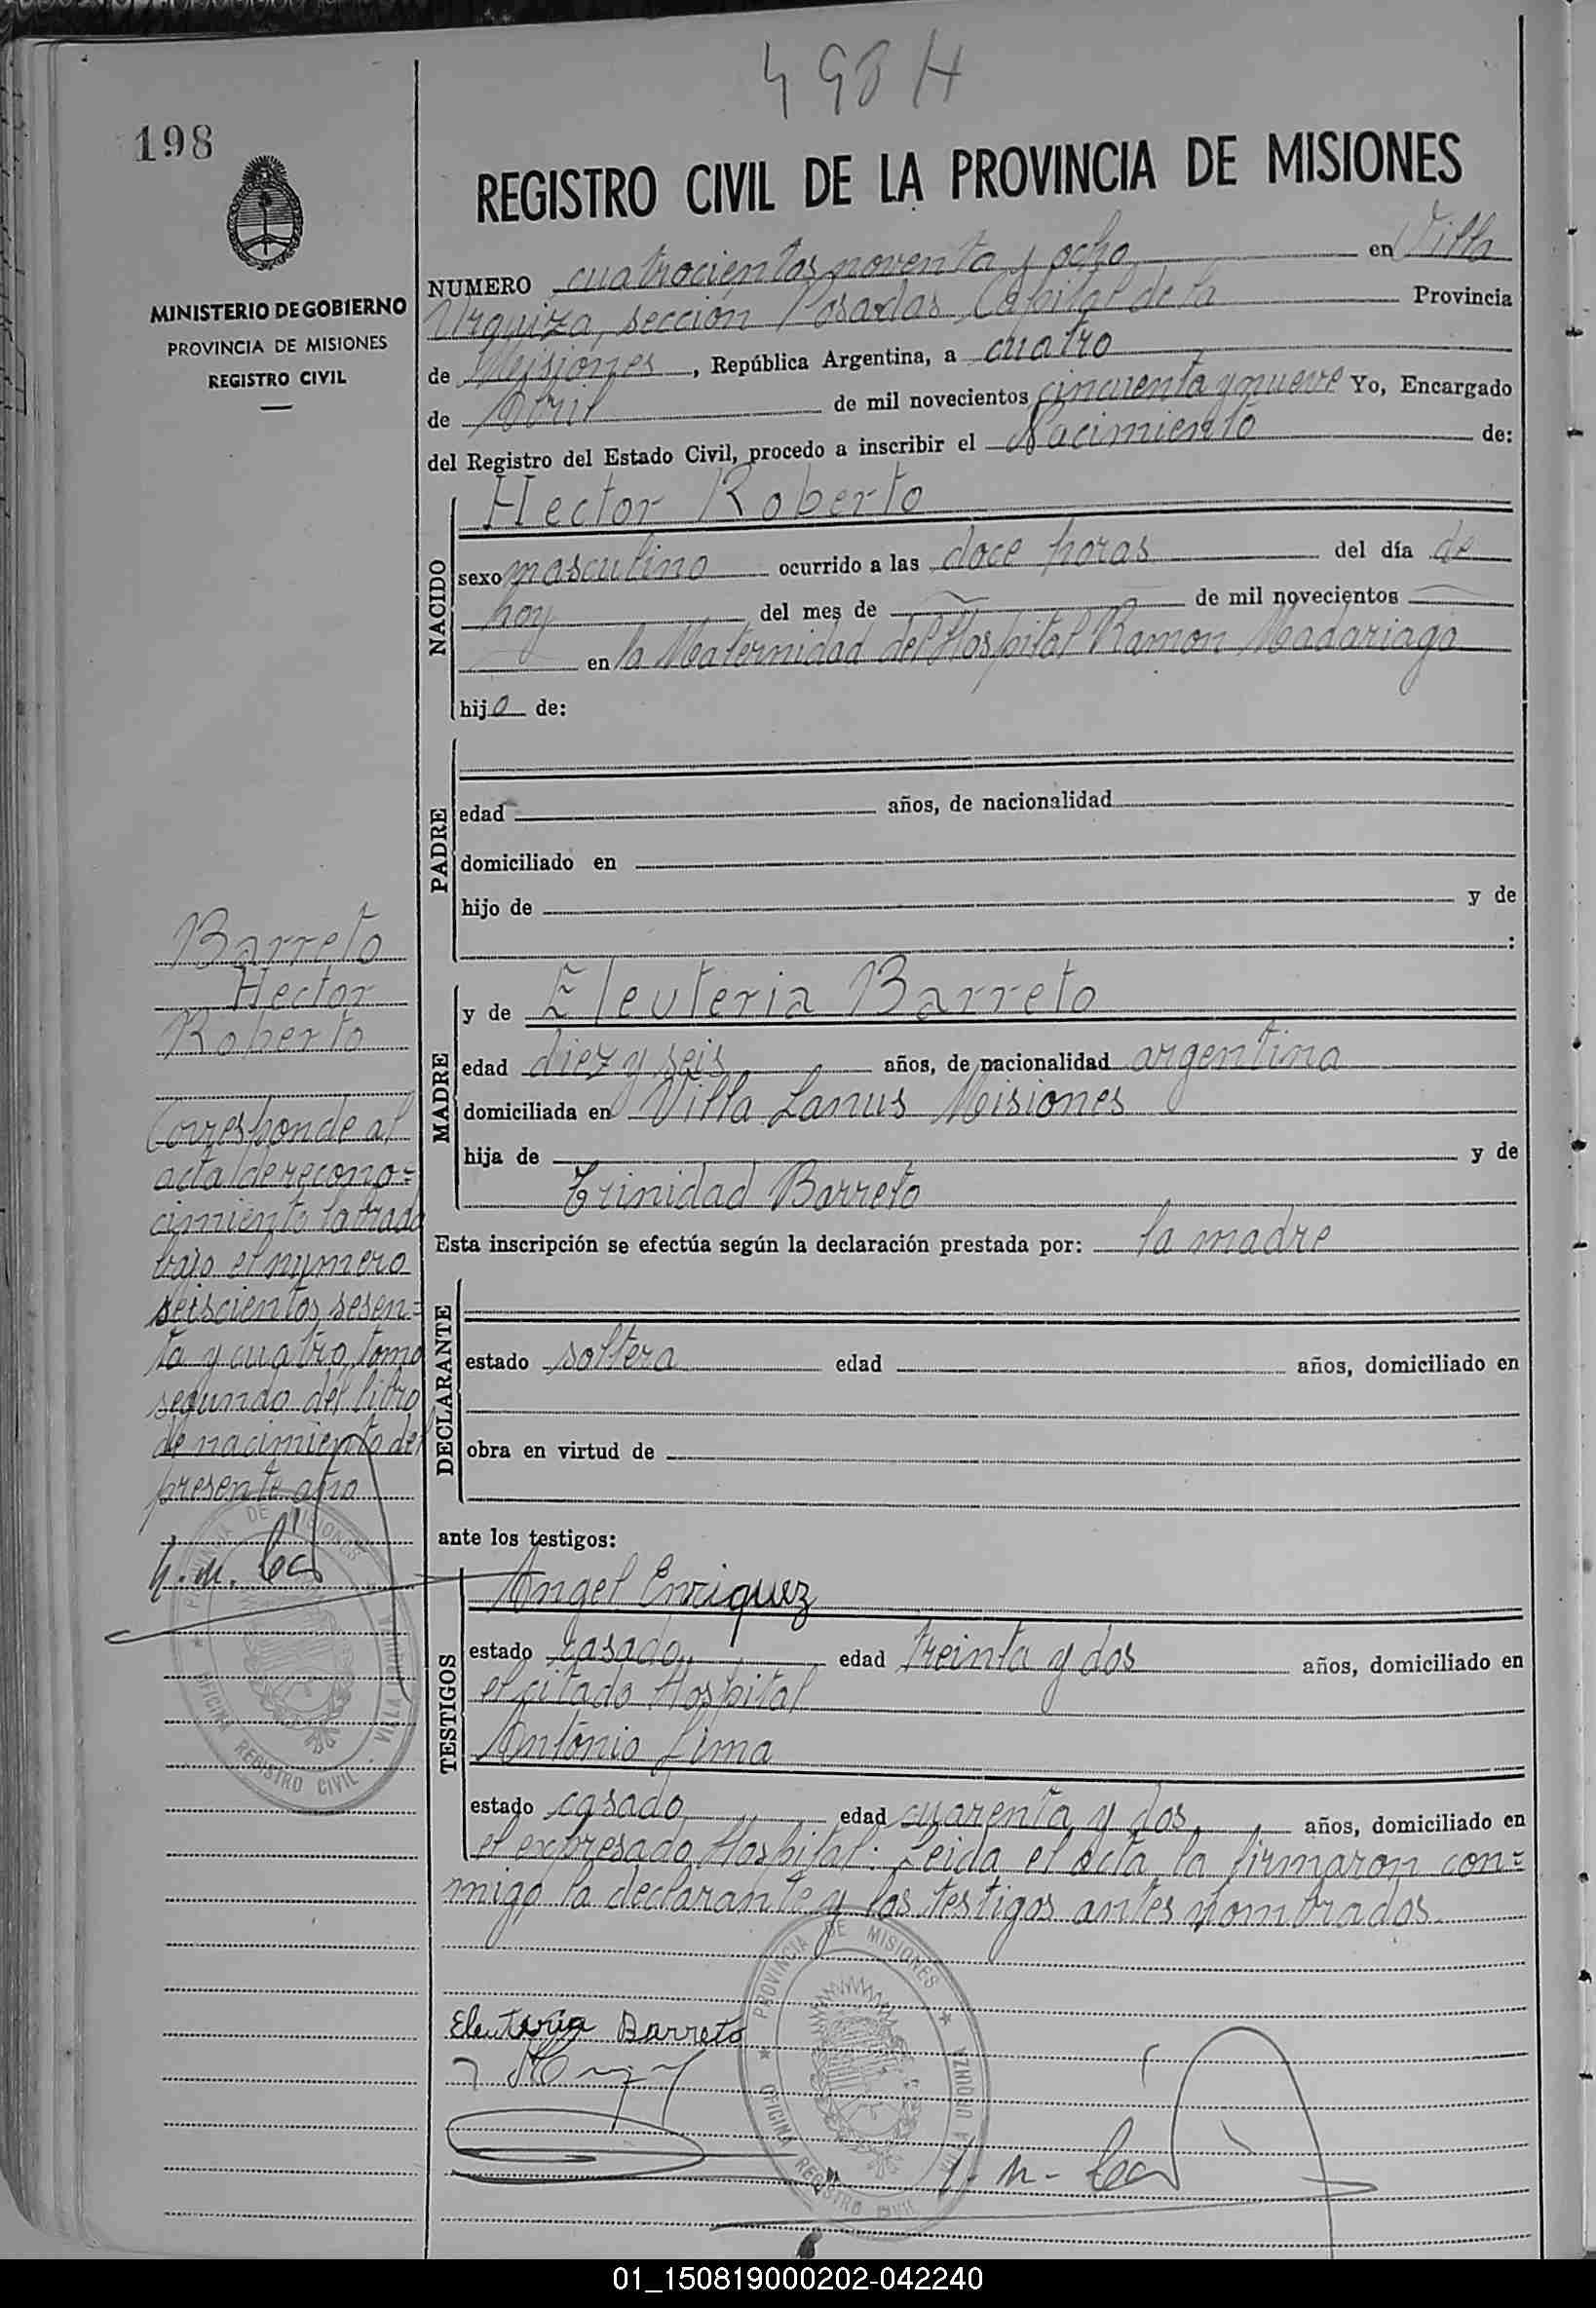 498 H
198
REGISTRO CIVIL DE LA PROVINCIA DE MISIONES
MINISTERIO DE GOBIERNO
PROVINCIA DE MISIONES
REGISTRO CIVIL
NUMERO cuatrocientos noventa y ocho en Villa
Urquiza, sección Posadas Capital de la Provincia
de Misiones, República Argentina, a cuatro
de Abril de mil novecientos cincuenta y nueve Yo, Encargado
del Registro del Estado Civil, procedo a inscribir el Nacimiento de:
NACIDO
Hector Roberto
sexo masculino ocurrido a las doce horas del día de
hoy del mes de de mil novecientos
en la Maternidad del Hospital Ramon Madariaga
hijo de:
PADRE
edad años, de nacionalidad
domiciliado en
hijo de y de
:
MADRE
y de Eleuteria Barreto
edad diez y seis años, de nacionalidad argentina
domiciliada en Villa Lanus Misiones
hija de y de
Trinidad Barreto
Esta inscripción se efectúa según la declaración prestada por: la madre
DECLARANTE
estado soltera edad años, domiciliado en
obra en virtud de
ante los testigos:
TESTIGOS
Angel Enriquez
estado casado edad treinta y dos años, domiciliado en
el citado Hospital
Antonio Lima
estado casado edad cuarenta y dos años, domiciliado en
el expresado Hospital: Leida el acta la firmaron con=
migo la declarante y los testigos antes nombrados
Eleuteria Barreto
PROVINCIA DE MISIONES
OFICINA REGISTRO CIVIL
VILLA URQUIZA
Barreto
Hector
Roberto
Corresponde al
acta de recono=
cimiento labrada
bajo el numero
seiscientos sesen=
ta y cuatro, tomo
segundo del libro
de nacimiento del
presente año
PROVINCIA DE MISIONES
OFICINA REGISTRO CIVIL
VILLA URQUIZA
01_150819000202-042240